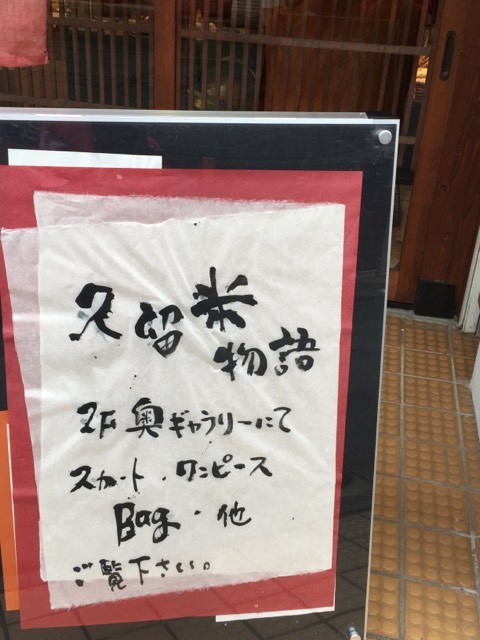 久留米
物語
2F 奥ギャラリーにて
スカート・ワンピース
Bag・他
ご覧下さい。